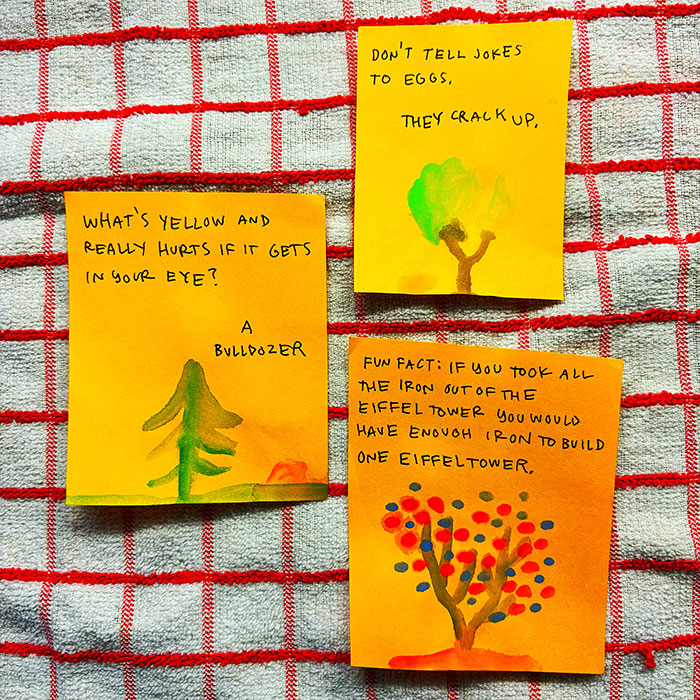 DON'T TELL JOKES
TO EGGS.
THEY CRACK UP.
WHAT'S YELLOW AND
REALLY HURTS IF IT GETS
IN YOUR EYE?
A
BULLDOZER
FUN FACT: IF YOU TOOK ALL
THE IRON OUT OF THE
EIFFEL TOWER YOU WOULD
HAVE ENOUGH IRON TO BUILD
ONE EIFFEL TOWER.